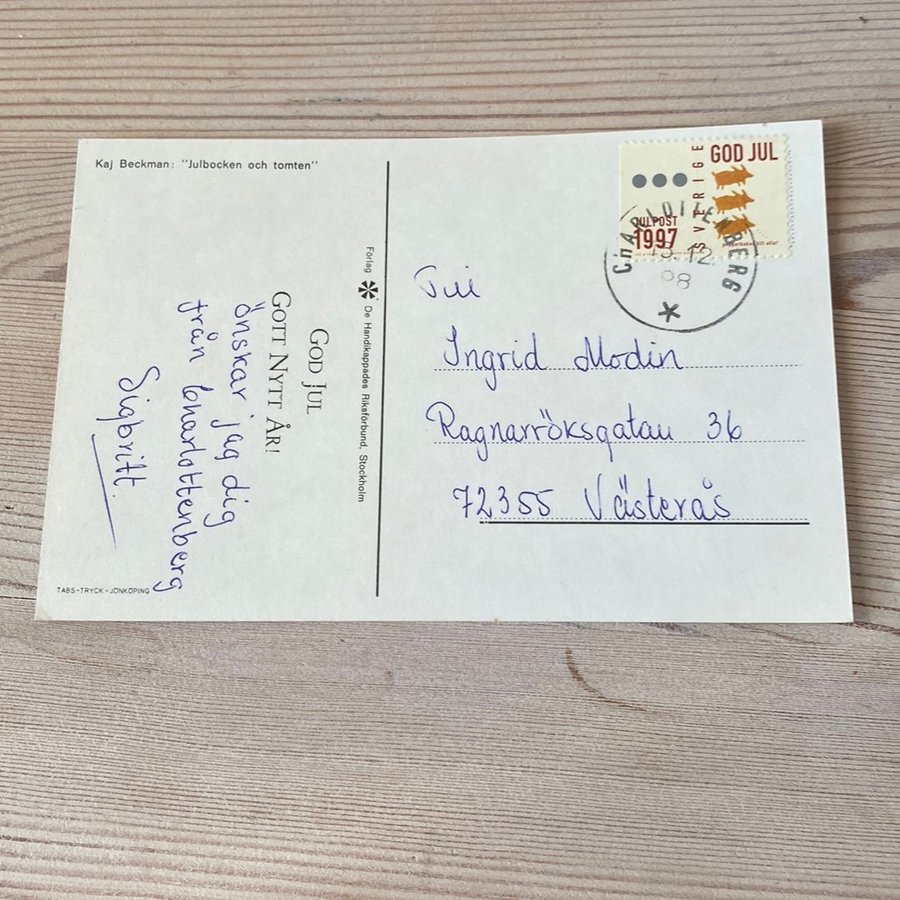 Kaj Beckman: "Julbocken och tomten"
GOD JUL
GOTT NYTT ÅR!
önskar jag dig
från Charlottenberg
Sigbritt.
TABS-TRYCK • JÖNKÖPING
Förlag De Handikappades Riksförbund, Stockholm
GOD JUL
SVERIGE
JULPOST
1997
CHARLOTTENBERG
12
98
Till
Ingrid Modin
Ragnarröksgatan 36
72355 Västerås